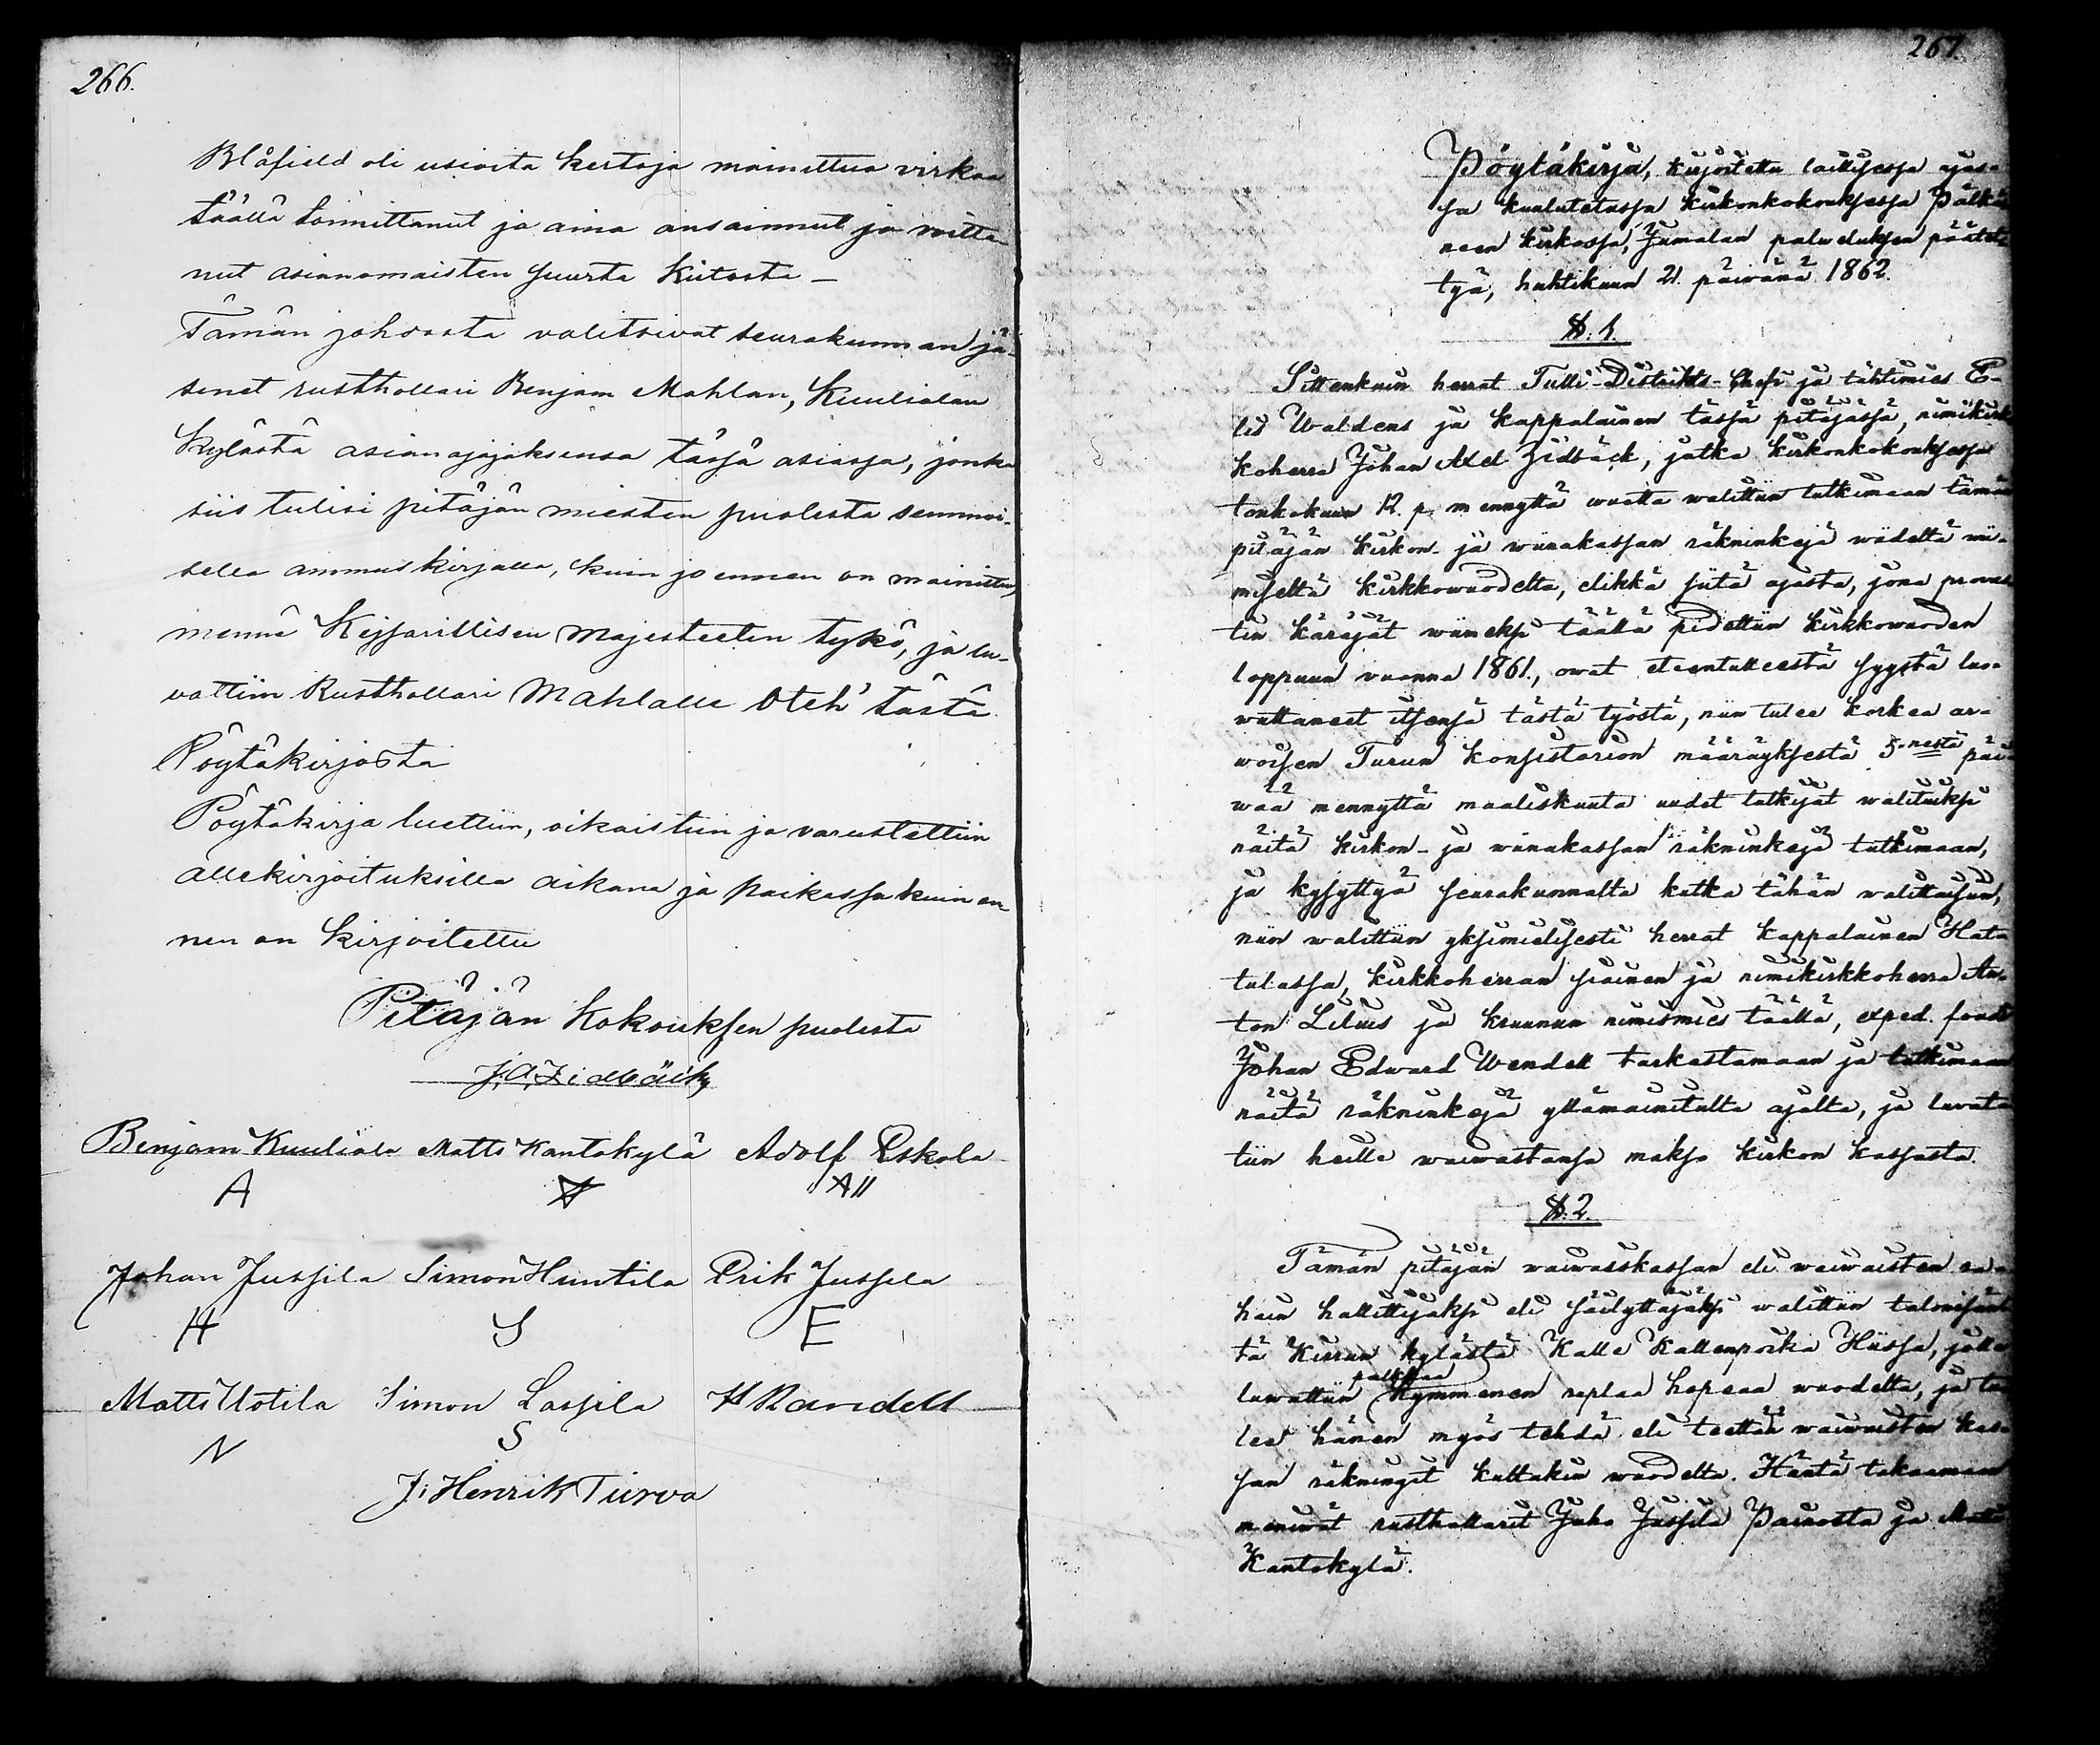 266.
Blåfield oli usioita kertoja mainittua virkaa
täällä toimittanut ja aina ansainnut ja voitta-
nut asianomaisten suurta kiitosta —
Tämän johdosta valitsivat seurakunnan jä-
senet rusthollari Benjam Mahlan, Kuulialan
kylästä asianajajaksensa tässä asiassa, jonka
siis tulisi pitäjän miesten puolesta semmoi-
sella anmuskirjalla, kuin jo ennen on mainittu,
mennä Keisarillisen Majesteetin tykö, ja lu-
vattiin Rusthollari Mahlalle Oteh' tästä
Pöytäkirjasta
Pöytäkirja luettiin, oikaistiin ja varustettiin
allekirjoituksilla aikana ja paikassa kuin en-
nen on kirjoitettu
Pitäjän Kokouksen puolesta
J. A. Zidbäck
Benjam Kuuliala Matts Kantokylä Adolf Eskola
A A AII
Johan Jussila Simon Huntila Erik Jussila
H S E
Matts Uotila Simon Lassila H Randell
N S
J. Henrik Tirva
267.
Pöytäkirja, kirjoitettu laillisessa ajas-
sa kuulutetussa kirkonkokouksessa Pälkä
neen kirkossa, Jumalan palveluksen päätet
tyä, huhtikuun 21. päiwänä 1862.
§. 1.
Sittenkuin herrat Tulli-Distrikts-Chefi ja tähtimies E-
lis Waldens ja kappalainen tässä pitäjässä, nimikirk
koherra Johan Axel Zidbäck, jotka kirkonkokouksessa
toukokuun 12. p. mennyttä wuotta walittiin tutkimaan tämän
pitäjän kirkon- ja wiinakassan räkninkejä wiideltä wii-
miseltä kirkkowuodelta, elikkä siitä ajasta, jona provas
tin käräjät wiimeksi täällä pidettiin kirkkowuoden
loppuun vuonna 1861., owat eteentulleesta syystä luo-
wuttaneet itsensä tästä työstä, niin tulee korkea ar-
woisen Turun Konsistorion määräyksestä 5-nestä päi
wää mennyttä maaliskuuta uudet tutkijat walituiksi
näitä kirkon- ja wiinakassan räkninkejä tutkimaan,
ja kysyttyä seurakunnalta kutka tähän walittaisiin,
niin walittiin yksimielisesti herrat kappalainen Hat
tulassa, kirkkoherran siainen ja nimikirkkoherra An-
ton Lilius ja kruunun nimismies täällä, exped. foudi
Johan Edward Wendell tarkastamaan ja tutkimaan
näitä räkninkejä yllämainitulta ajalta, ja luvat
tiin heille waiwastansa maksa kirkon kassasta.
§. 2.
Tämän pitäjän waiwaiskassan eli waiwaisten ra-
hain hallittijaksi eli säilyttäjäksi walittiin talonisänt
tä Kirrun kylästä Kalle Kallenpoika Hiissa, jolla
palkkaa
luwattiin kymmenen ruplaa hopeaa wuodelta, ja tu
lee hänen myös tehdä eli teettää waiwaisten kas-
san räkningit kultakin wuodelta. Häntä takaamaan
meniwät rusthollarit Juho Jussila Painosta ja Matti
Kantokylä.